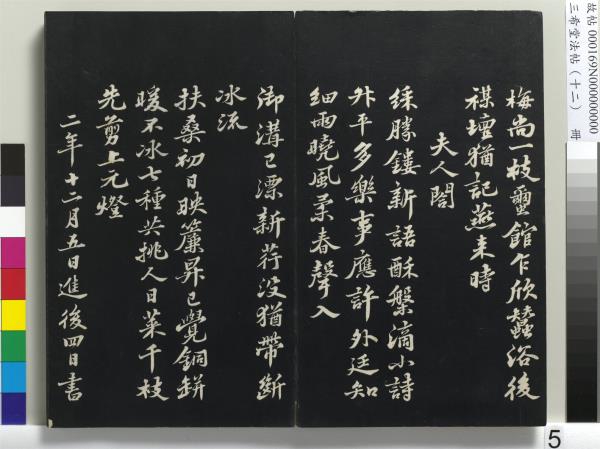 故帖 000169N000000000
三希堂法帖（十二） 冊
梅尚一枝蠒館乍欣蠶浴後
禖壇猶記燕来時
夫人閤
綵勝鏤新語酥槃滴小詩
升平多樂事應許外廷知
細雨曉風柔春聲入
御溝已漂新荇没猶帶斷
冰流
扶桑初日映簾昇已覺銅缾
暖不冰七種共挑人日菜千枝
先剪上元燈
二年十二月五日進後四日書
5